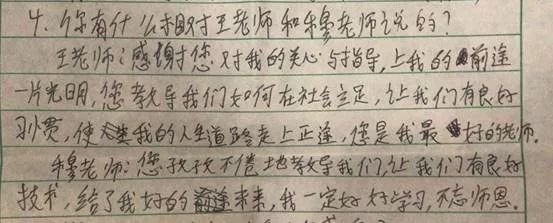 4. 你有什么想对王老师和穆老师说的?
王老师:感谢您对我的关心与指导,让我的前途
一片光明,您教导我们如何在社会立足,让我们有良好
习惯,使我的人生道路走上正途,您是我最好的老师。
穆老师:您孜孜不倦地教导我们,让我们有良好
技术,给了我好的前途未来,我一定好好学习,不忘师恩。